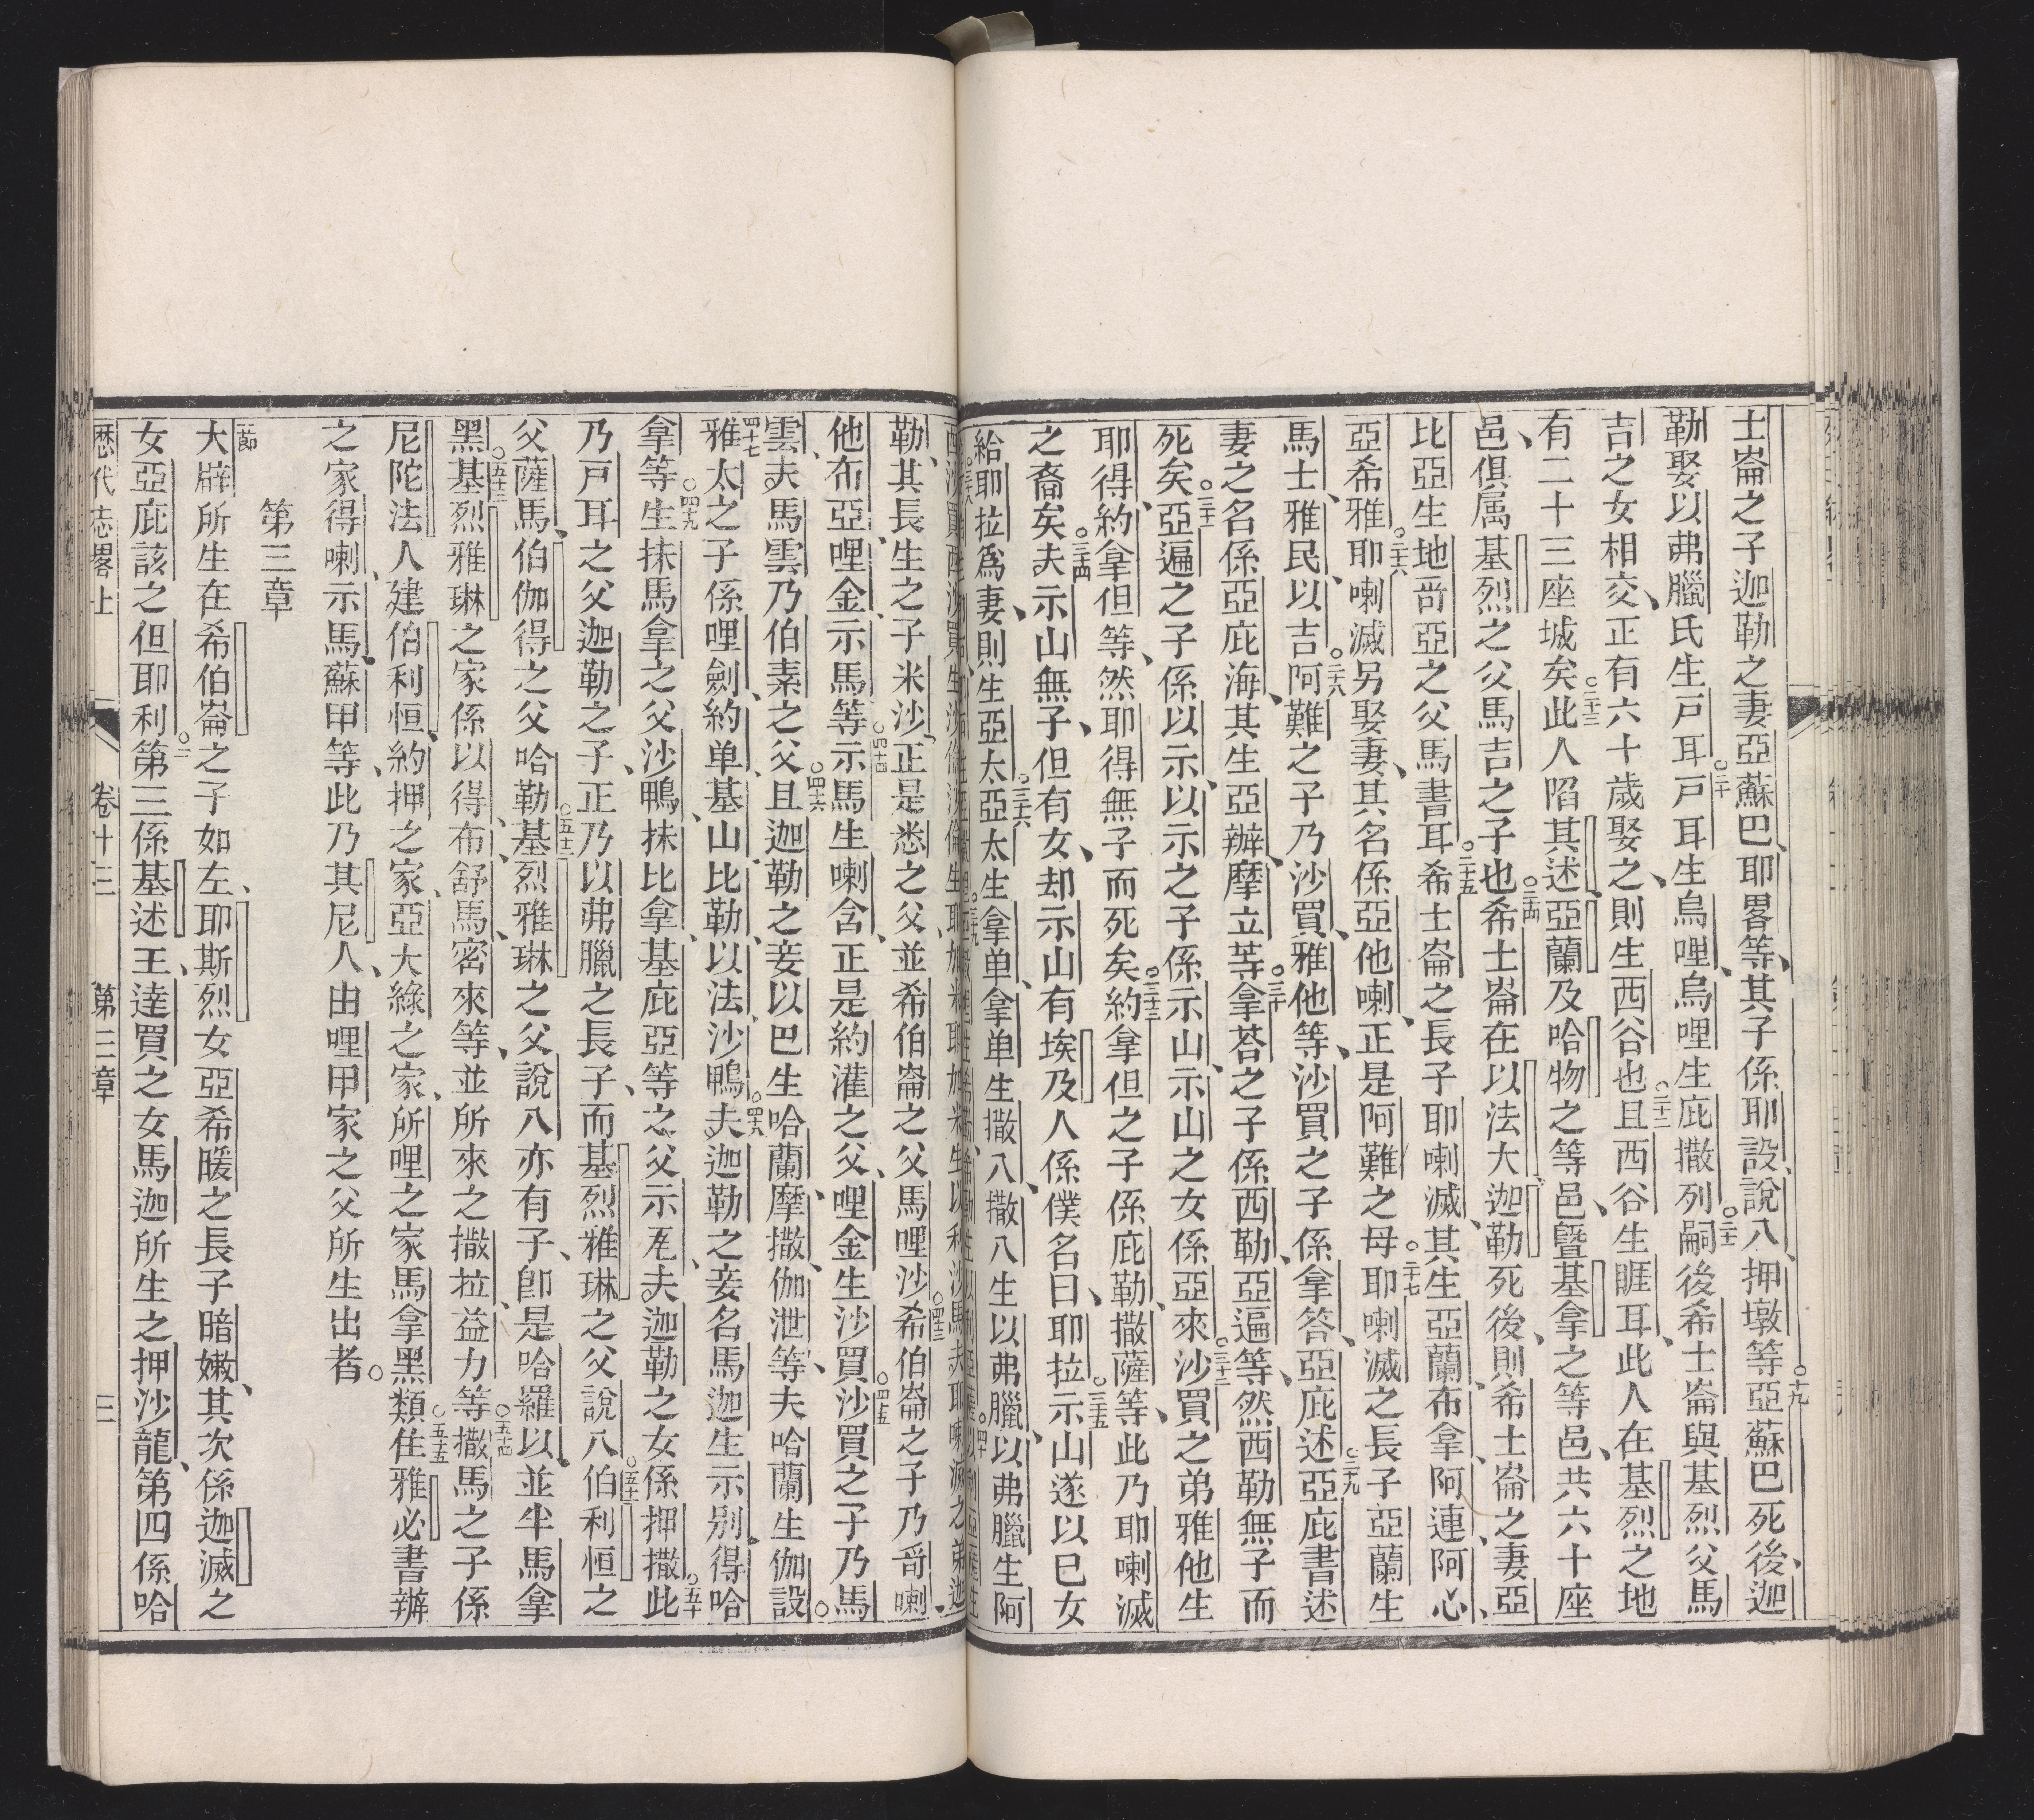 士崙之子迦勒之妻亞蘇巴、耶畧等、其子係耶設、說八、押墩等○十九亞蘇巴死後、迦
勒娶以弗臘氏生戶耳○二十戶耳生烏哩、烏哩生庇撒列○二十一嗣後希士崙與基烈父馬
吉之女相交、正有六十歲娶之、則生西谷也○二十二且西谷生睚耳、此人在基烈之地
有二十三座城矣○二十三此人陷其述、亞蘭及哈物之等邑、曁基拿之等邑、共六十座
邑、俱属基烈之父馬吉之子也○二十四希士崙在以法大迦勒死後、則希士崙之妻亞
比亞生地啇亞之父馬書耳○二十五希士崙之長子耶喇滅、其生亞蘭、布拿、阿連、阿心、
亞希雅○二十六耶喇滅另娶妻、其名係亞他喇、正是阿難之母○二十七耶喇滅之長子亞蘭生
馬士、雅民、以吉○二十八阿難之子乃沙買、雅他等、沙買之子係拿答、亞庇述○二十九亞庇書述
妻之名係亞庇海、其生亞辦、摩立等○三十拿荅之子係西勒、亞遍等、然西勒無子而
死矣○三十一亞遍之子係以示、以示之子係示山、示山之女係亞來○三十二沙買之弟雅他生
耶得、約拿但等、然耶得無子而死矣○三十三約拿但之子係庇勒、撒薩等、此乃耶喇滅
之裔矣○三十四夫示山無子、但有女、却示山有埃及人係僕名曰、耶拉○三十五示山遂以巳女
給耶拉爲妻、則生亞太○三十六亞太生拿单、拿单生撒八、撒八生以弗臘、以弗臘生阿
勒、其長生之子米沙、正是悉之父、並希伯崙之父馬哩沙○四十三希伯崙之子乃哥喇、
他布亞、哩金、示馬等○四十四示馬生喇含、正是約灌之父、哩金生沙買○四十五沙買之子乃馬
雲、夫馬雲乃伯素之父○四十六且迦勒之妾以巴生哈蘭、摩撒、伽泄等、夫哈蘭生伽設○
四十七雅太之子係哩劍、約单、基山、比勒、以法、沙鴨○四十八夫迦勒之妾名馬迦生示别、得哈
拿等○四十九生抹馬拿之父沙鴨、抹比拿、基庇亞等之父示禹、夫迦勒之女係押撒○五十此
乃戶耳之父迦勒之子、正乃以弗臘之長子、而基烈雅琳之父說八○五十一伯利恒之
父薩馬、伯伽得之父哈勒○五十二基烈雅琳之父說八亦有子、卽是哈羅以並半馬拿
黑○五十三基烈雅琳之家係以得、布舒、馬密來等、並所來之撒拉、益力等○五十四撒馬之子係
尼陀法人建伯利恒、約押之家、亞大綠之家、所哩之家馬拿黑類○五十五住雅必書辦
之家得喇、示馬、蘇甲等、此乃其尼人、由哩甲家之父所生出者○
第三章
節大辟所生在希伯崙之子如左、耶斯烈女亞希暖之長子暗嫩、其次係迦滅之
女亞庇該之但耶利○二第三係基述王、達買之女馬迦所生之押沙龍、第四係哈
歷代志畧上 卷十三 第三章 三